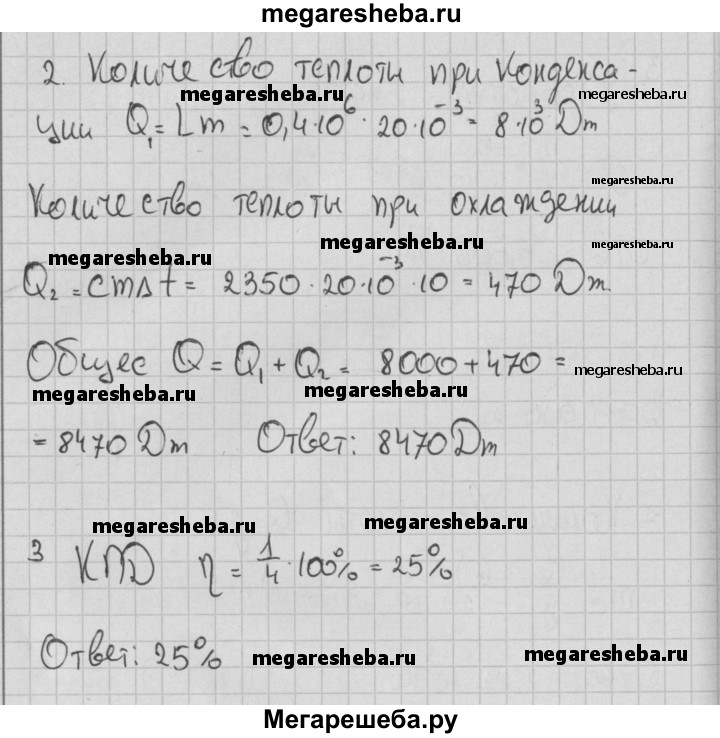 megaresheba.ru
2. Количество теплоты при конденса-
megaresheba.ru megaresheba.ru
ции Q₁ = Lm = 0,4·10⁶ · 20·10⁻³ = 8·10³ Дж
megaresheba.ru
Количество теплоты при охлаждении
megaresheba.ru megaresheba.ru megaresheba.ru
Q₂ = cmΔt = 2350·20·10⁻³·10 = 470 Дж.
Общее Q = Q₁ + Q₂ = 8000 + 470 =
megaresheba.ru megaresheba.ru megaresheba.ru
= 8470 Дж Ответ: 8470 Дж
megaresheba.ru megaresheba.ru
3 КПД η = 1/4 · 100% = 25%
Ответ: 25%
megaresheba.ru megaresheba.ru
Мегарешеба.ру